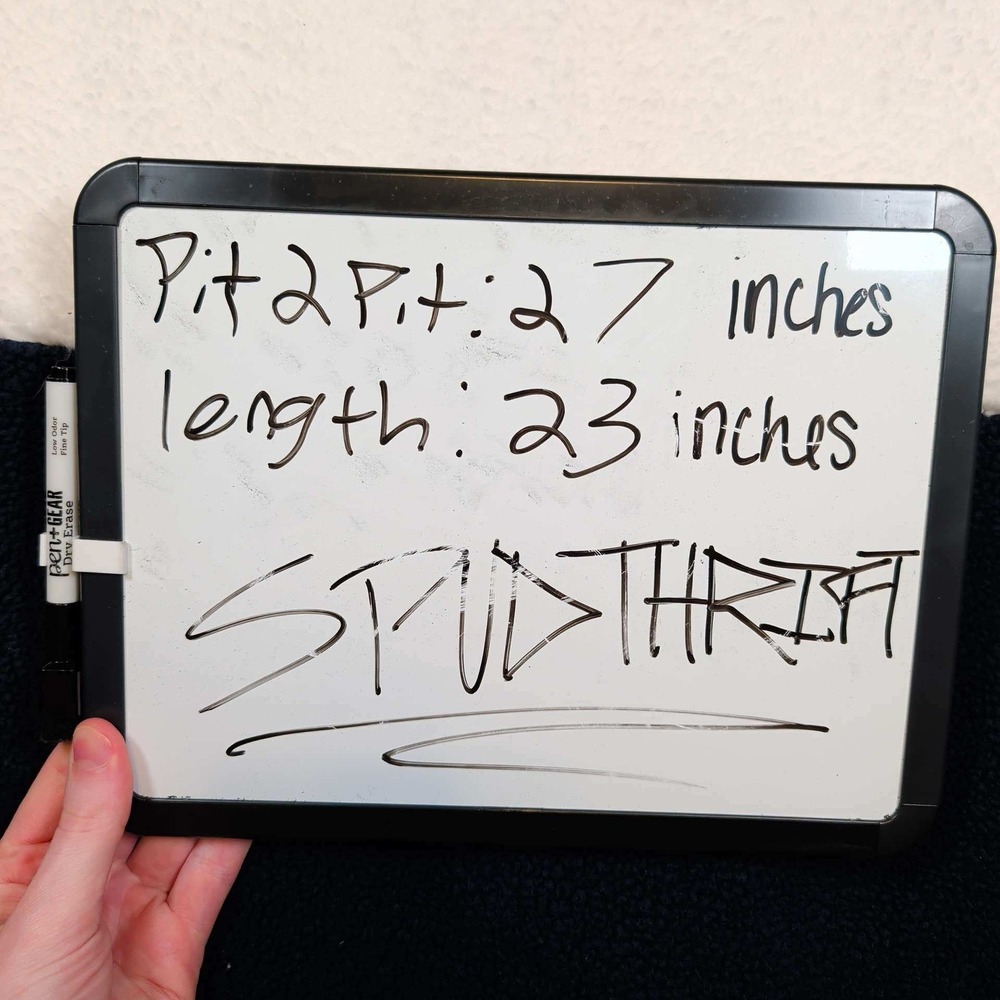 Pit 2 Pit: 27 inches
length: 23 inches
SPUDTHRIFT
Low Odor
Fine Tip
pen+GEAR
Dry Erase